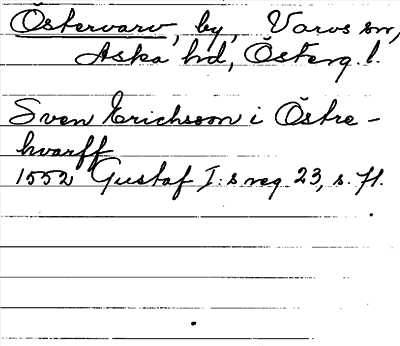 Östervarv, by, Varvs sn,
Aska hd, Österg. l.
Sven Erichsson i Östre-
hvarff
1552 Gustaf I:s reg. 23, s. 71.